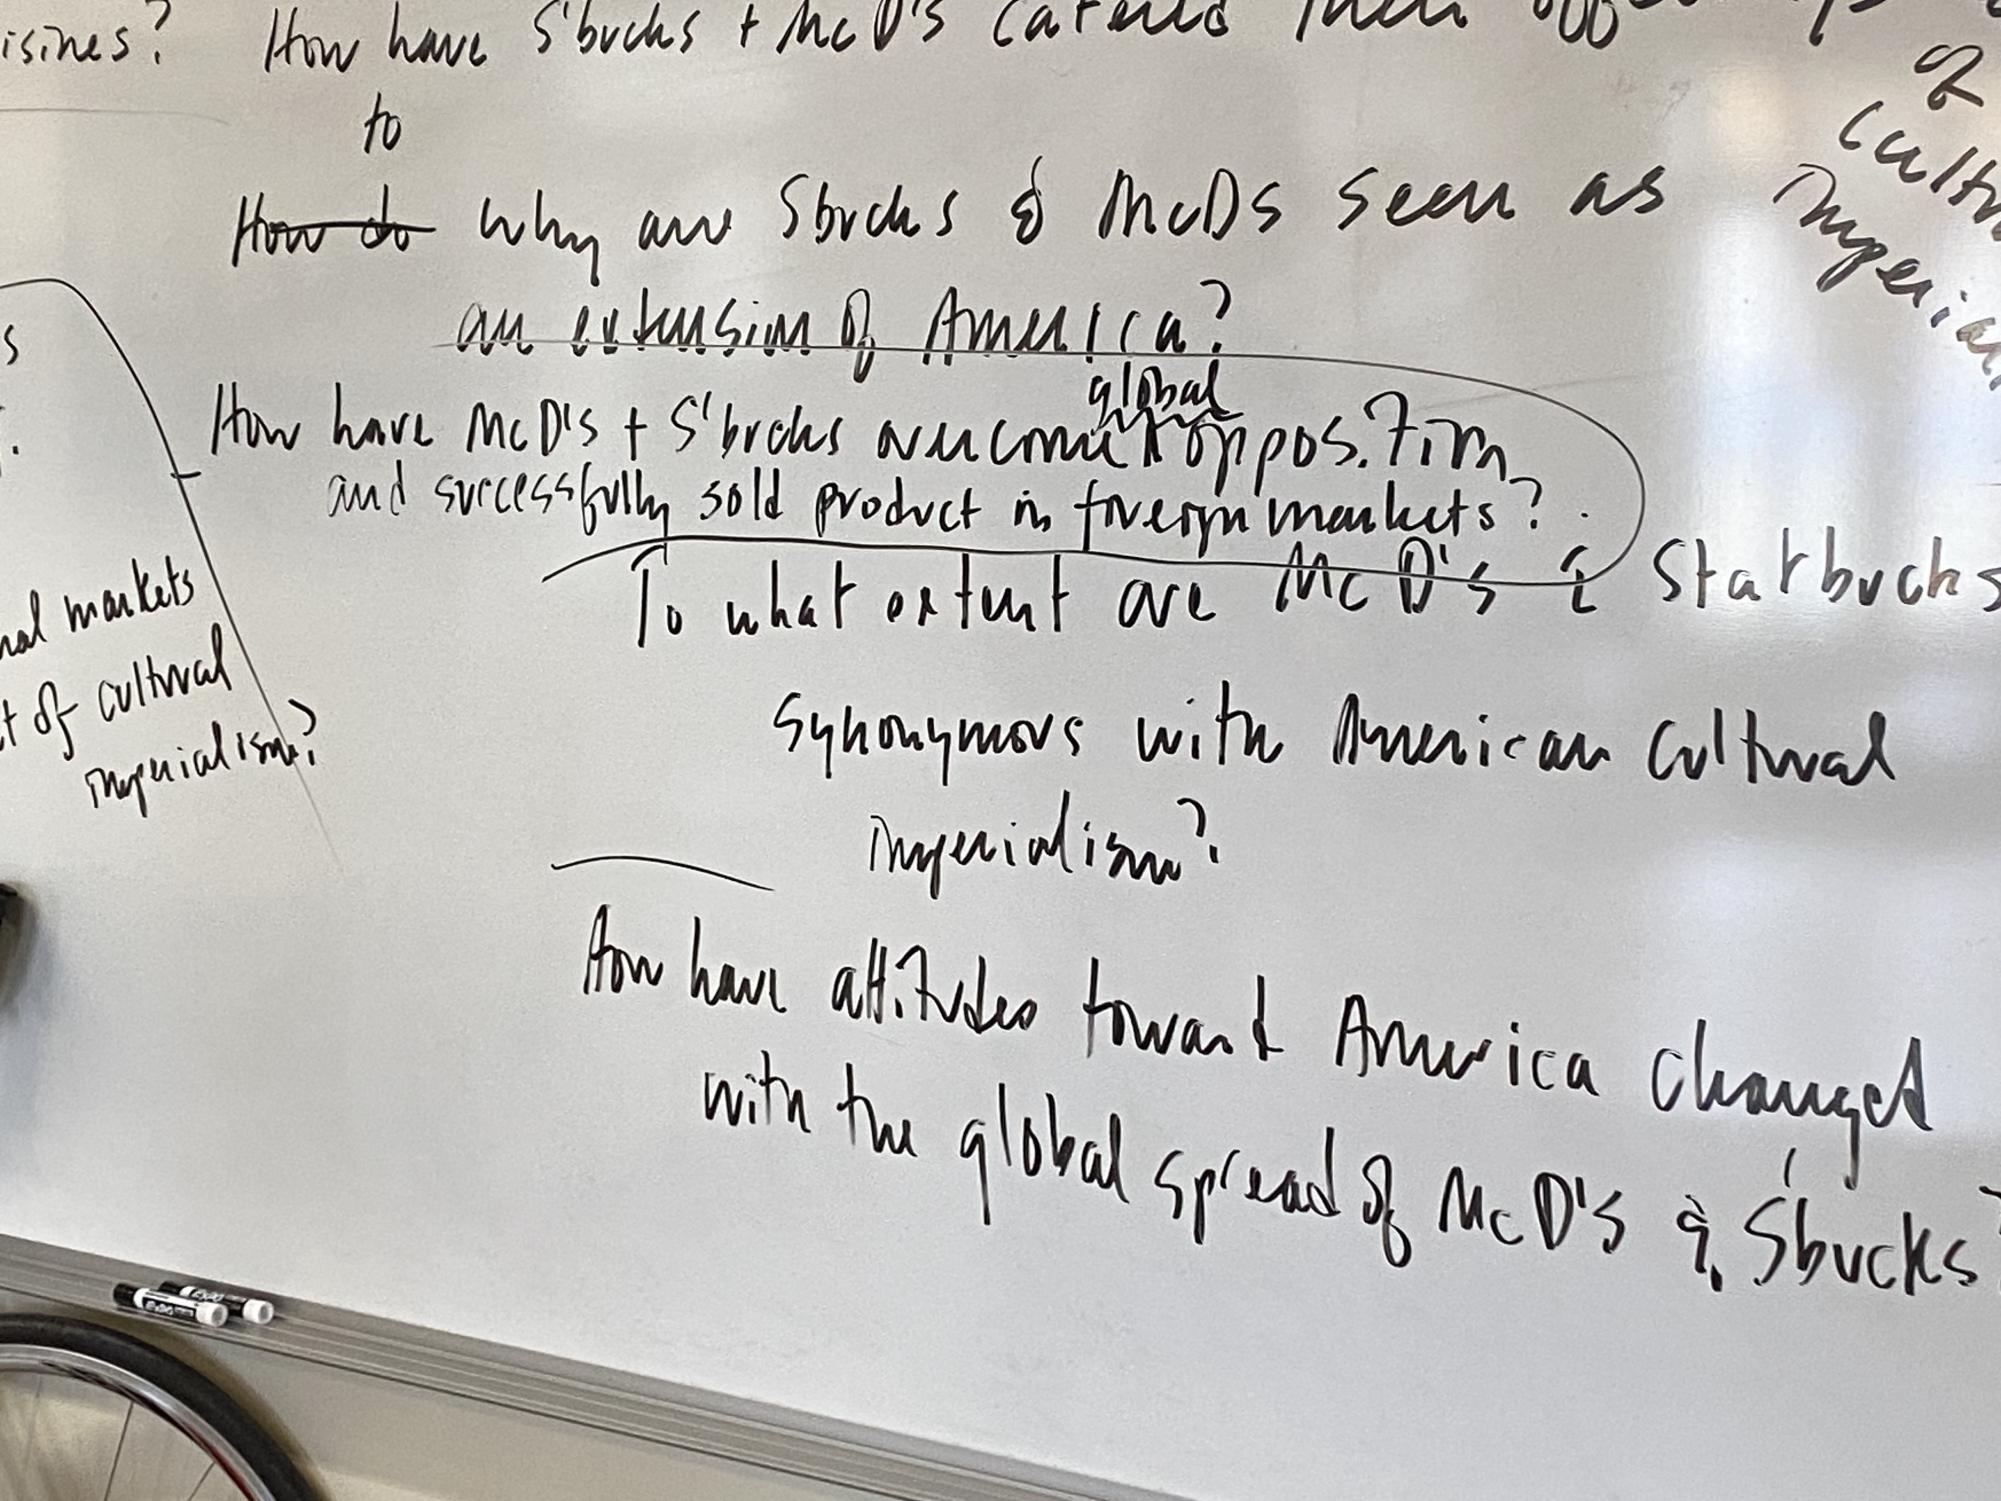 isines? How have S'bucks + McD's catered their
to
How do why are Sbucks & McDs seen as
an extension of America?
global
How have McD's + S'bucks overcome oppos.tion
and successfully sold product in foreign markets?
To what extent are McD's & Starbucks
synonymous with American cultural
imperialism?
How have attitudes toward America changed
with the global spread of McD's & Sbucks?
s
nal markets
t of cultural
imperialism?
&
cultu
imperial
EXPO